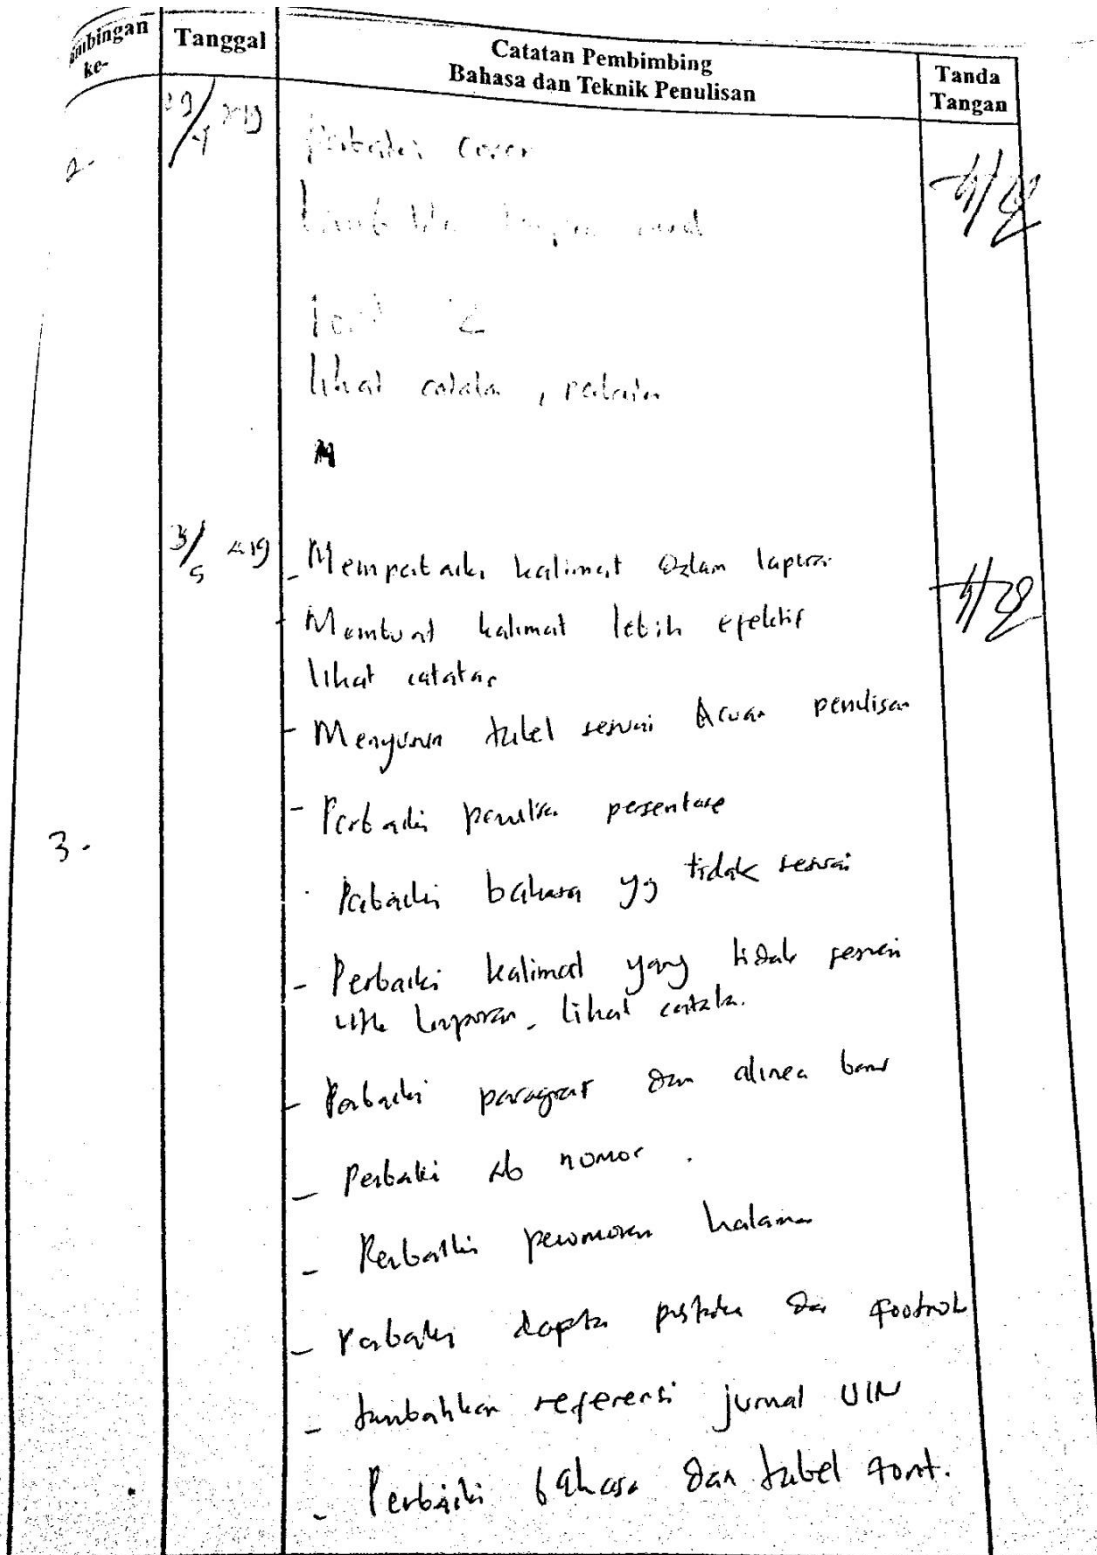 Bimbingan Tanggal Catatan Pembimbing Tanda
ke- Bahasa dan Teknik Penulisan Tangan
2-
Perbaiki cover
lihat catatan, perbaiki
3/5 2019
- Memperbaiki kalimat dalam laporan
- Membuat kalimat lebih efektif
lihat catatan
- Menyusun tabel sesuai Acuan penulisan
- Perbaiki penulisan persentase
3-
- Perbaiki bahasa yg tidak sesuai
- Perbaiki kalimat yang tidak sesuai
utk laporan, lihat catatan.
- Perbaiki paragraf dan alinea baru
- Perbaiki sub nomor.
- Perbaiki penomoran halaman
- Perbaiki daftar pustaka dan footnote
- tambahkan referensi jurnal UIN
- Perbaiki bahasa dan tabel font.